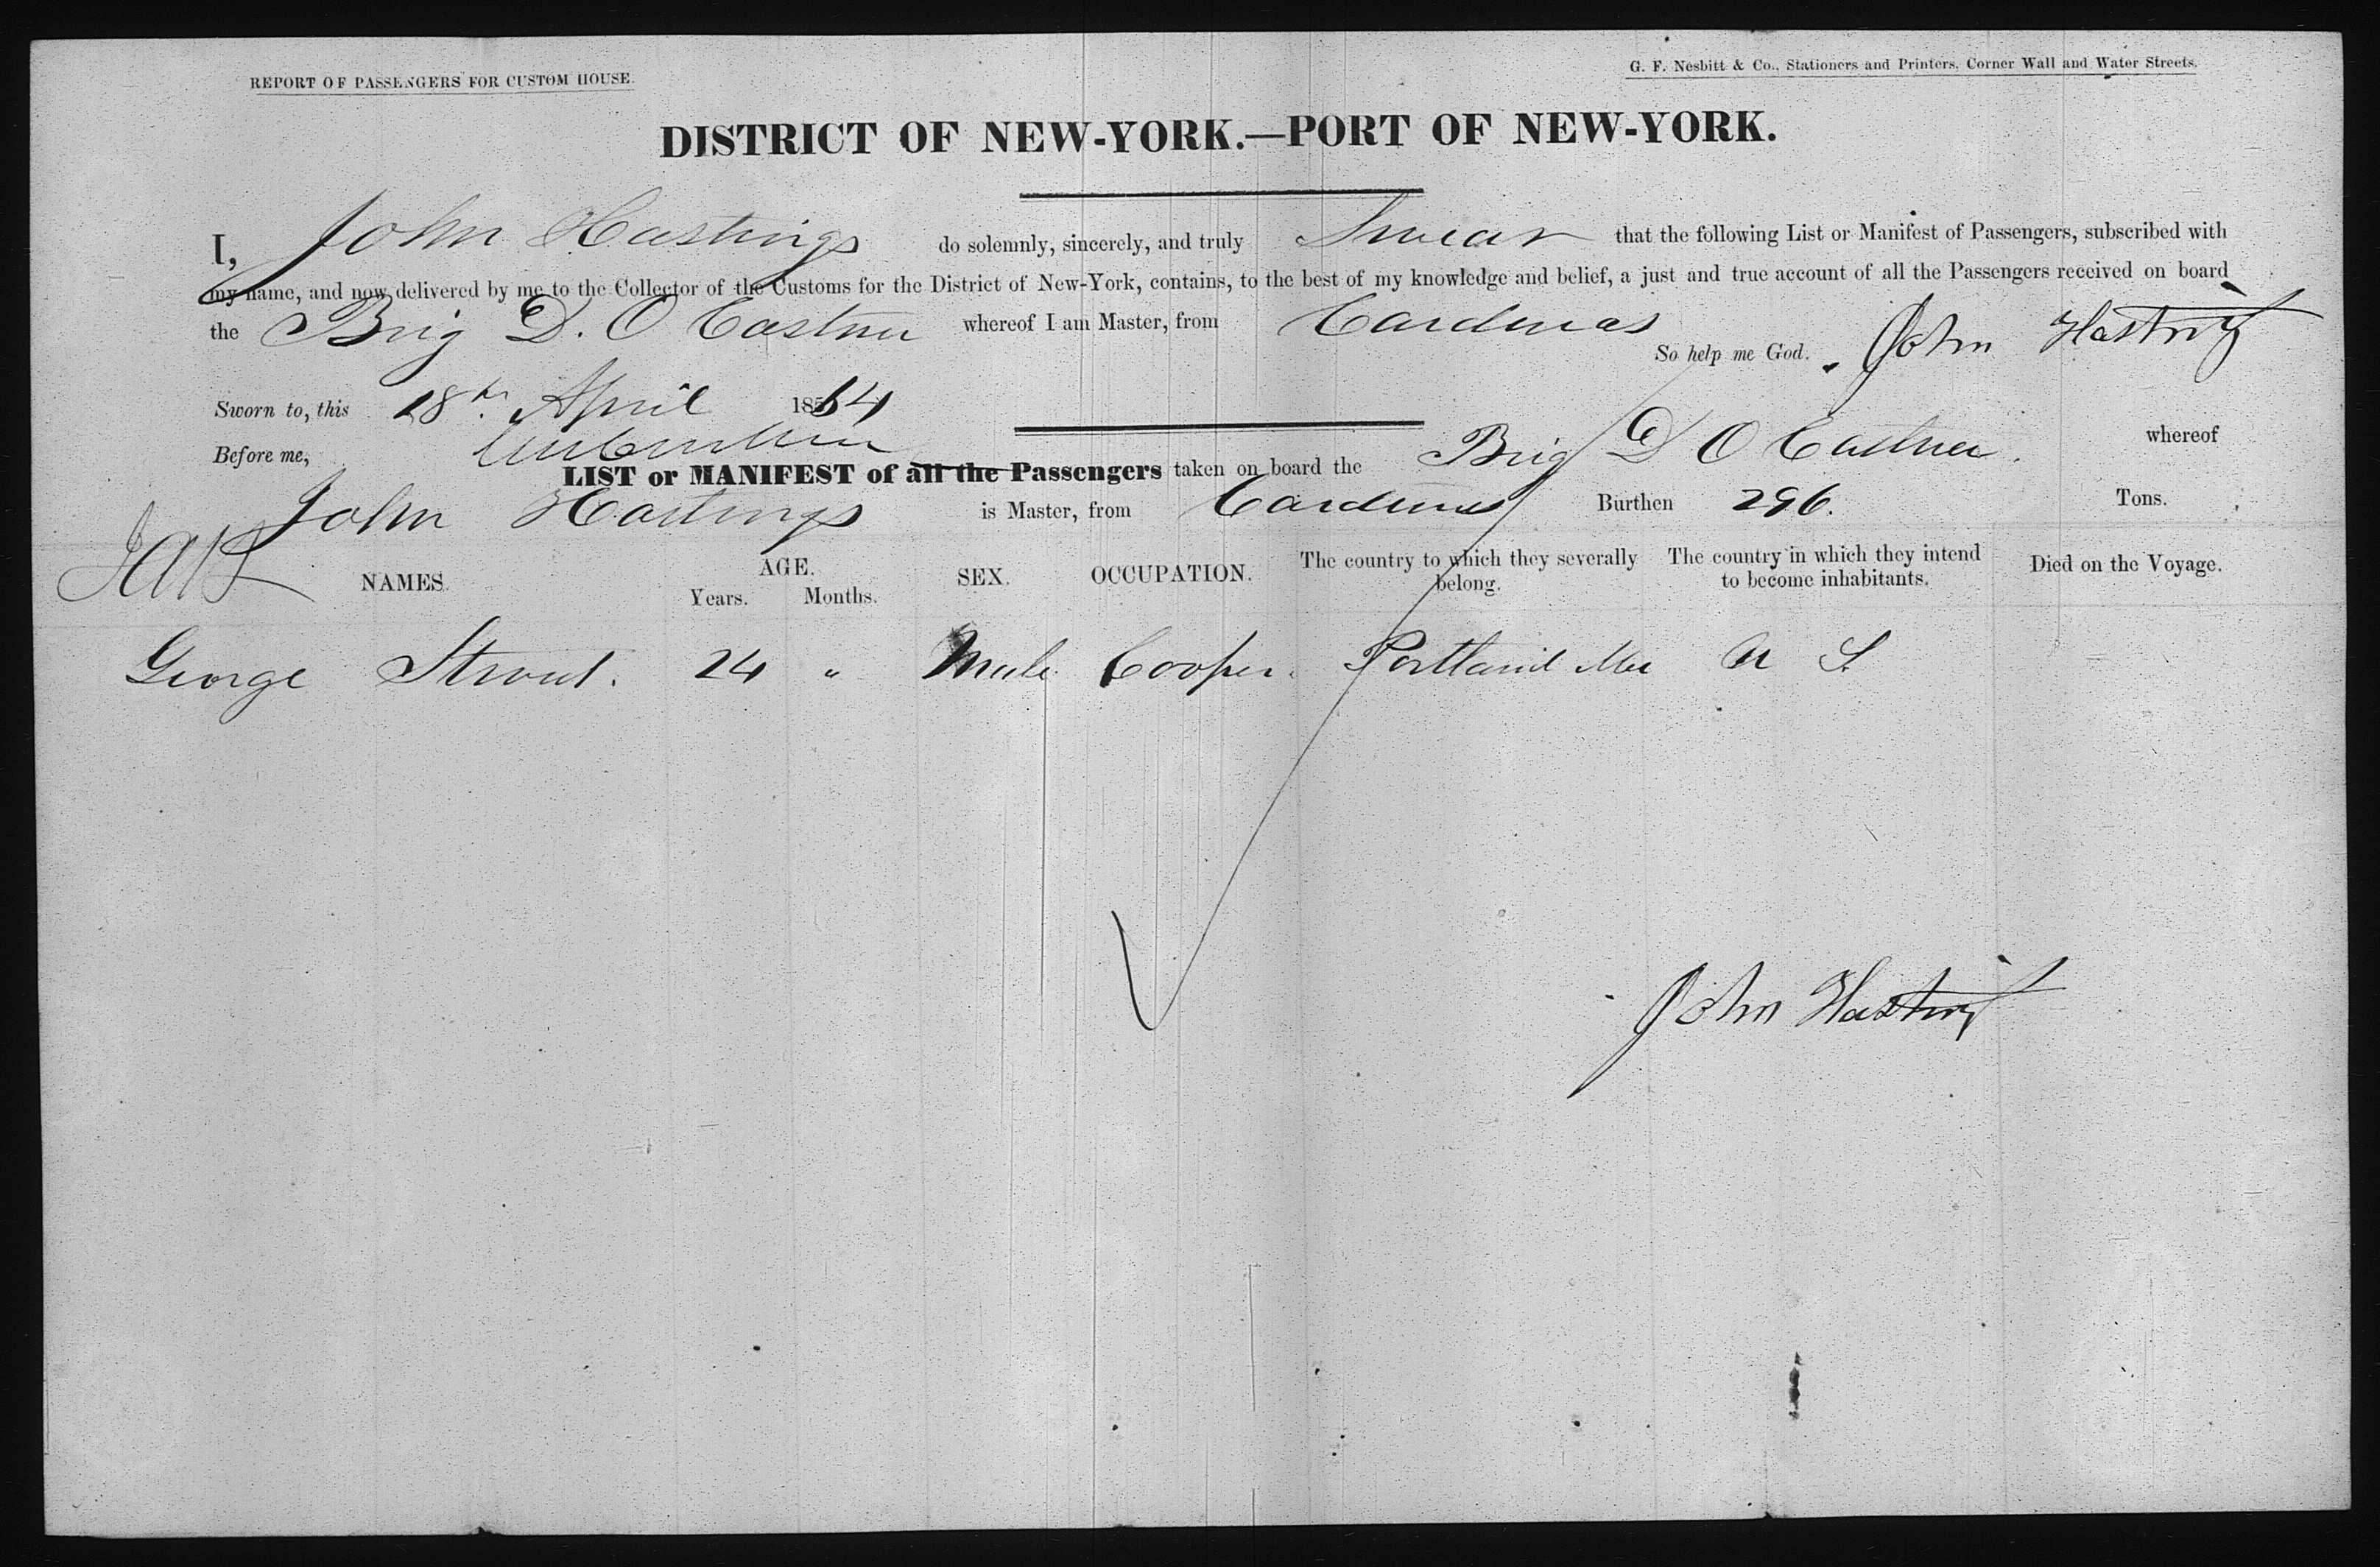 REPORT OF PASSENGERS FOR CUSTOM HOUSE.
G. F. Nesbitt & Co., Stationers and Printers, Corner Wall and Water Streets.
DISTRICT OF NEW-YORK.—PORT OF NEW-YORK.
I, John Hastings do solemnly, sincerely, and truly Swear that the following List or Manifest of Passengers, subscribed with
my name, and now delivered by me to the Collector of the Customs for the District of New-York, contains, to the best of my knowledge and belief, a just and true account of all the Passengers received on board
the Brig D. O Castner whereof I am Master, from Cardenas
So help me God. John Hastings
Sworn to, this 18th April 1864
Before me,
LIST or MANIFEST of all the Passengers taken on board the Brig D O Castner whereof
John Hastings is Master, from Cardenas Burthen 296. Tons.
NAMES. AGE. Years. Months. SEX. OCCUPATION. The country to which they severally belong. The country in which they intend to become inhabitants. Died on the Voyage.
George Strout. 24 " Male Cooper. Portland Me U S
John Hastings